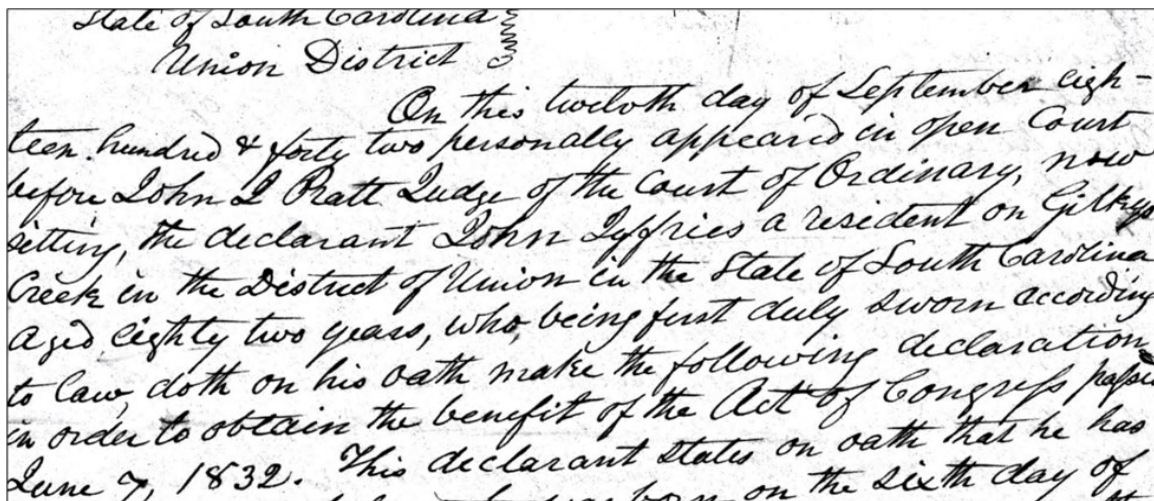 State of South Carolina
Union District
On this twelvth day of September eigh-
teen hundred & forty two personally appeared in open Court
before John J Pratt Judge of the Court of Ordinary, now
sitting, the declarant John Jeffries a resident on Gilkeys
Creek in the District of Union in the State of South Carolina
aged eighty two years, who, being first duly sworn according
to law, doth on his oath make the following declaration
in order to obtain the benefit of the Act of Congress passed
June 7, 1832. This declarant states on oath that he has
born on the sixth day of